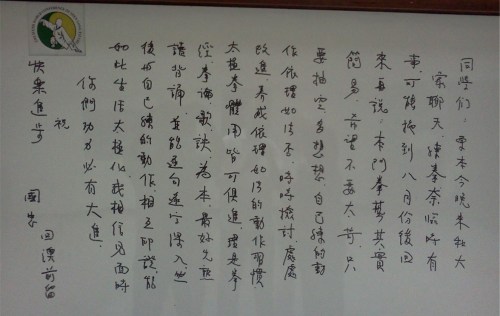 同學們：原本今晚來和大
家聊天、練拳奈臨時有
事可能拖到八月份後回
來再說，本門拳藝其實
簡易，希望不要大苛，只
要抽空多想想，自己練的動
作依理如法否，時時檢討，處處
改進養成依理如法的動作習慣，
太極拳體用皆可俱進，理是拳
經、拳論、歌訣為本，最好先熟
讀背誦，並能逐句逐字深入，然
後與自己練的動作，相互印證，能
如此生活太極化，我相信見面時
你們功力必有大進，
祝
快樂進步
國
回澳前留